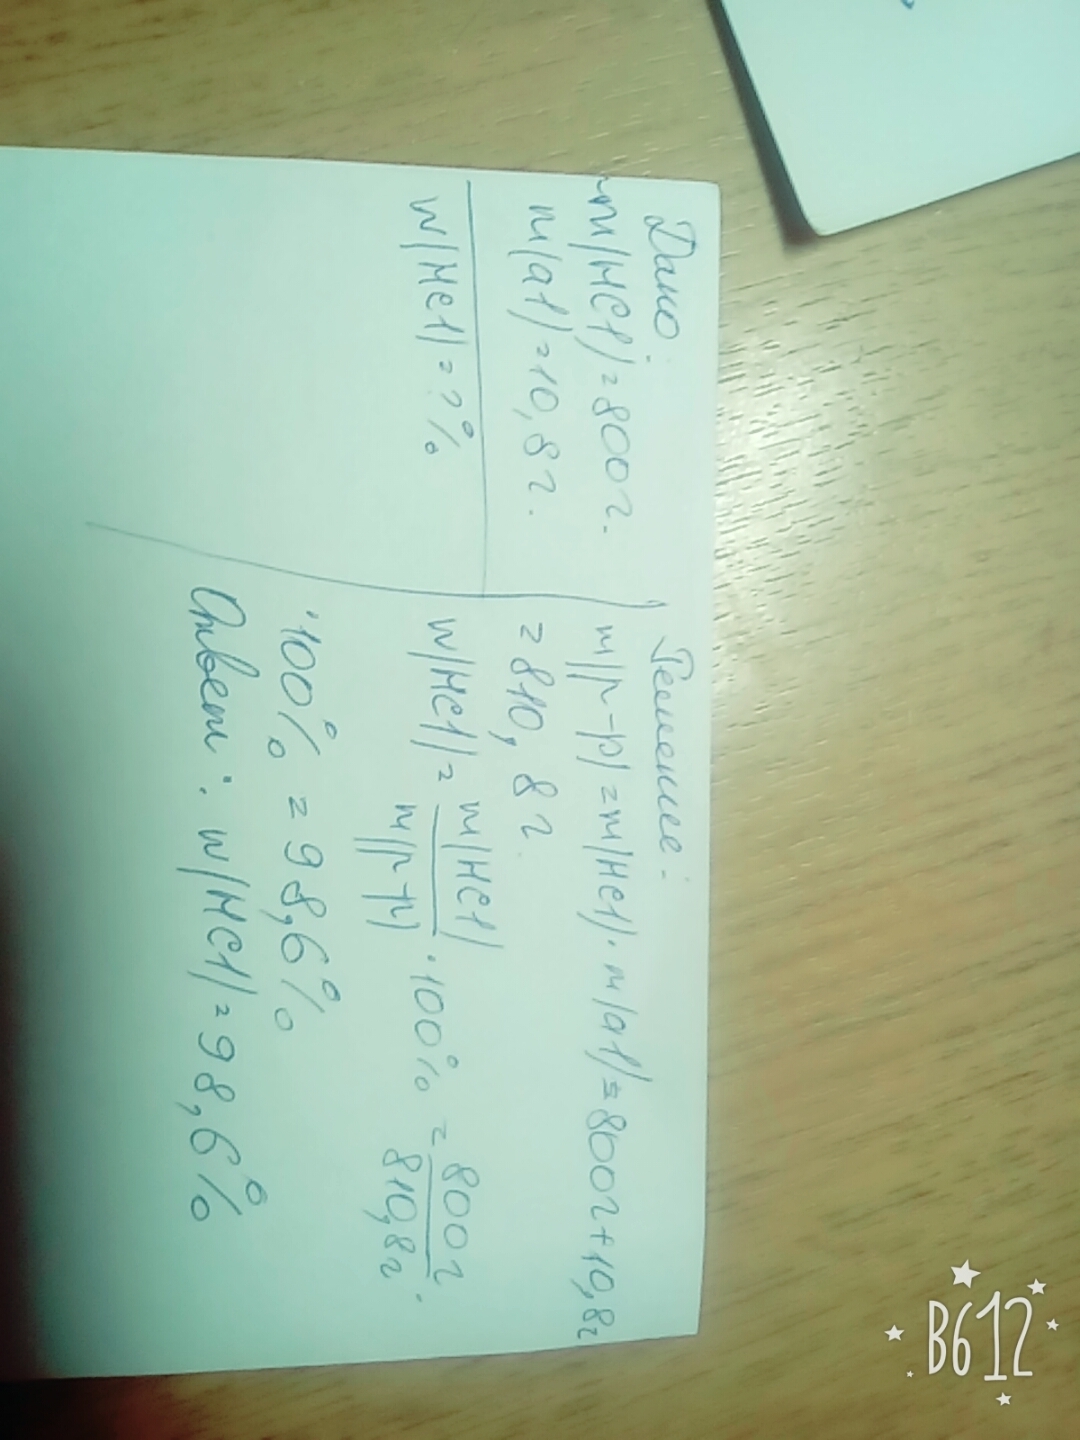 Дано:
m/HCl/=800г.
m/al/=10,8г.
w/HCl/=?%
Решение:
m/р-р/=m/HCl/·m/al/=800г+10,8г
=810,8г.
w/HCl/= m/HCl/ / m/р-р/ ·100% = 800г / 810,8г ·
·100% = 98,6%
Ответ: w/HCl/=98,6%
B612